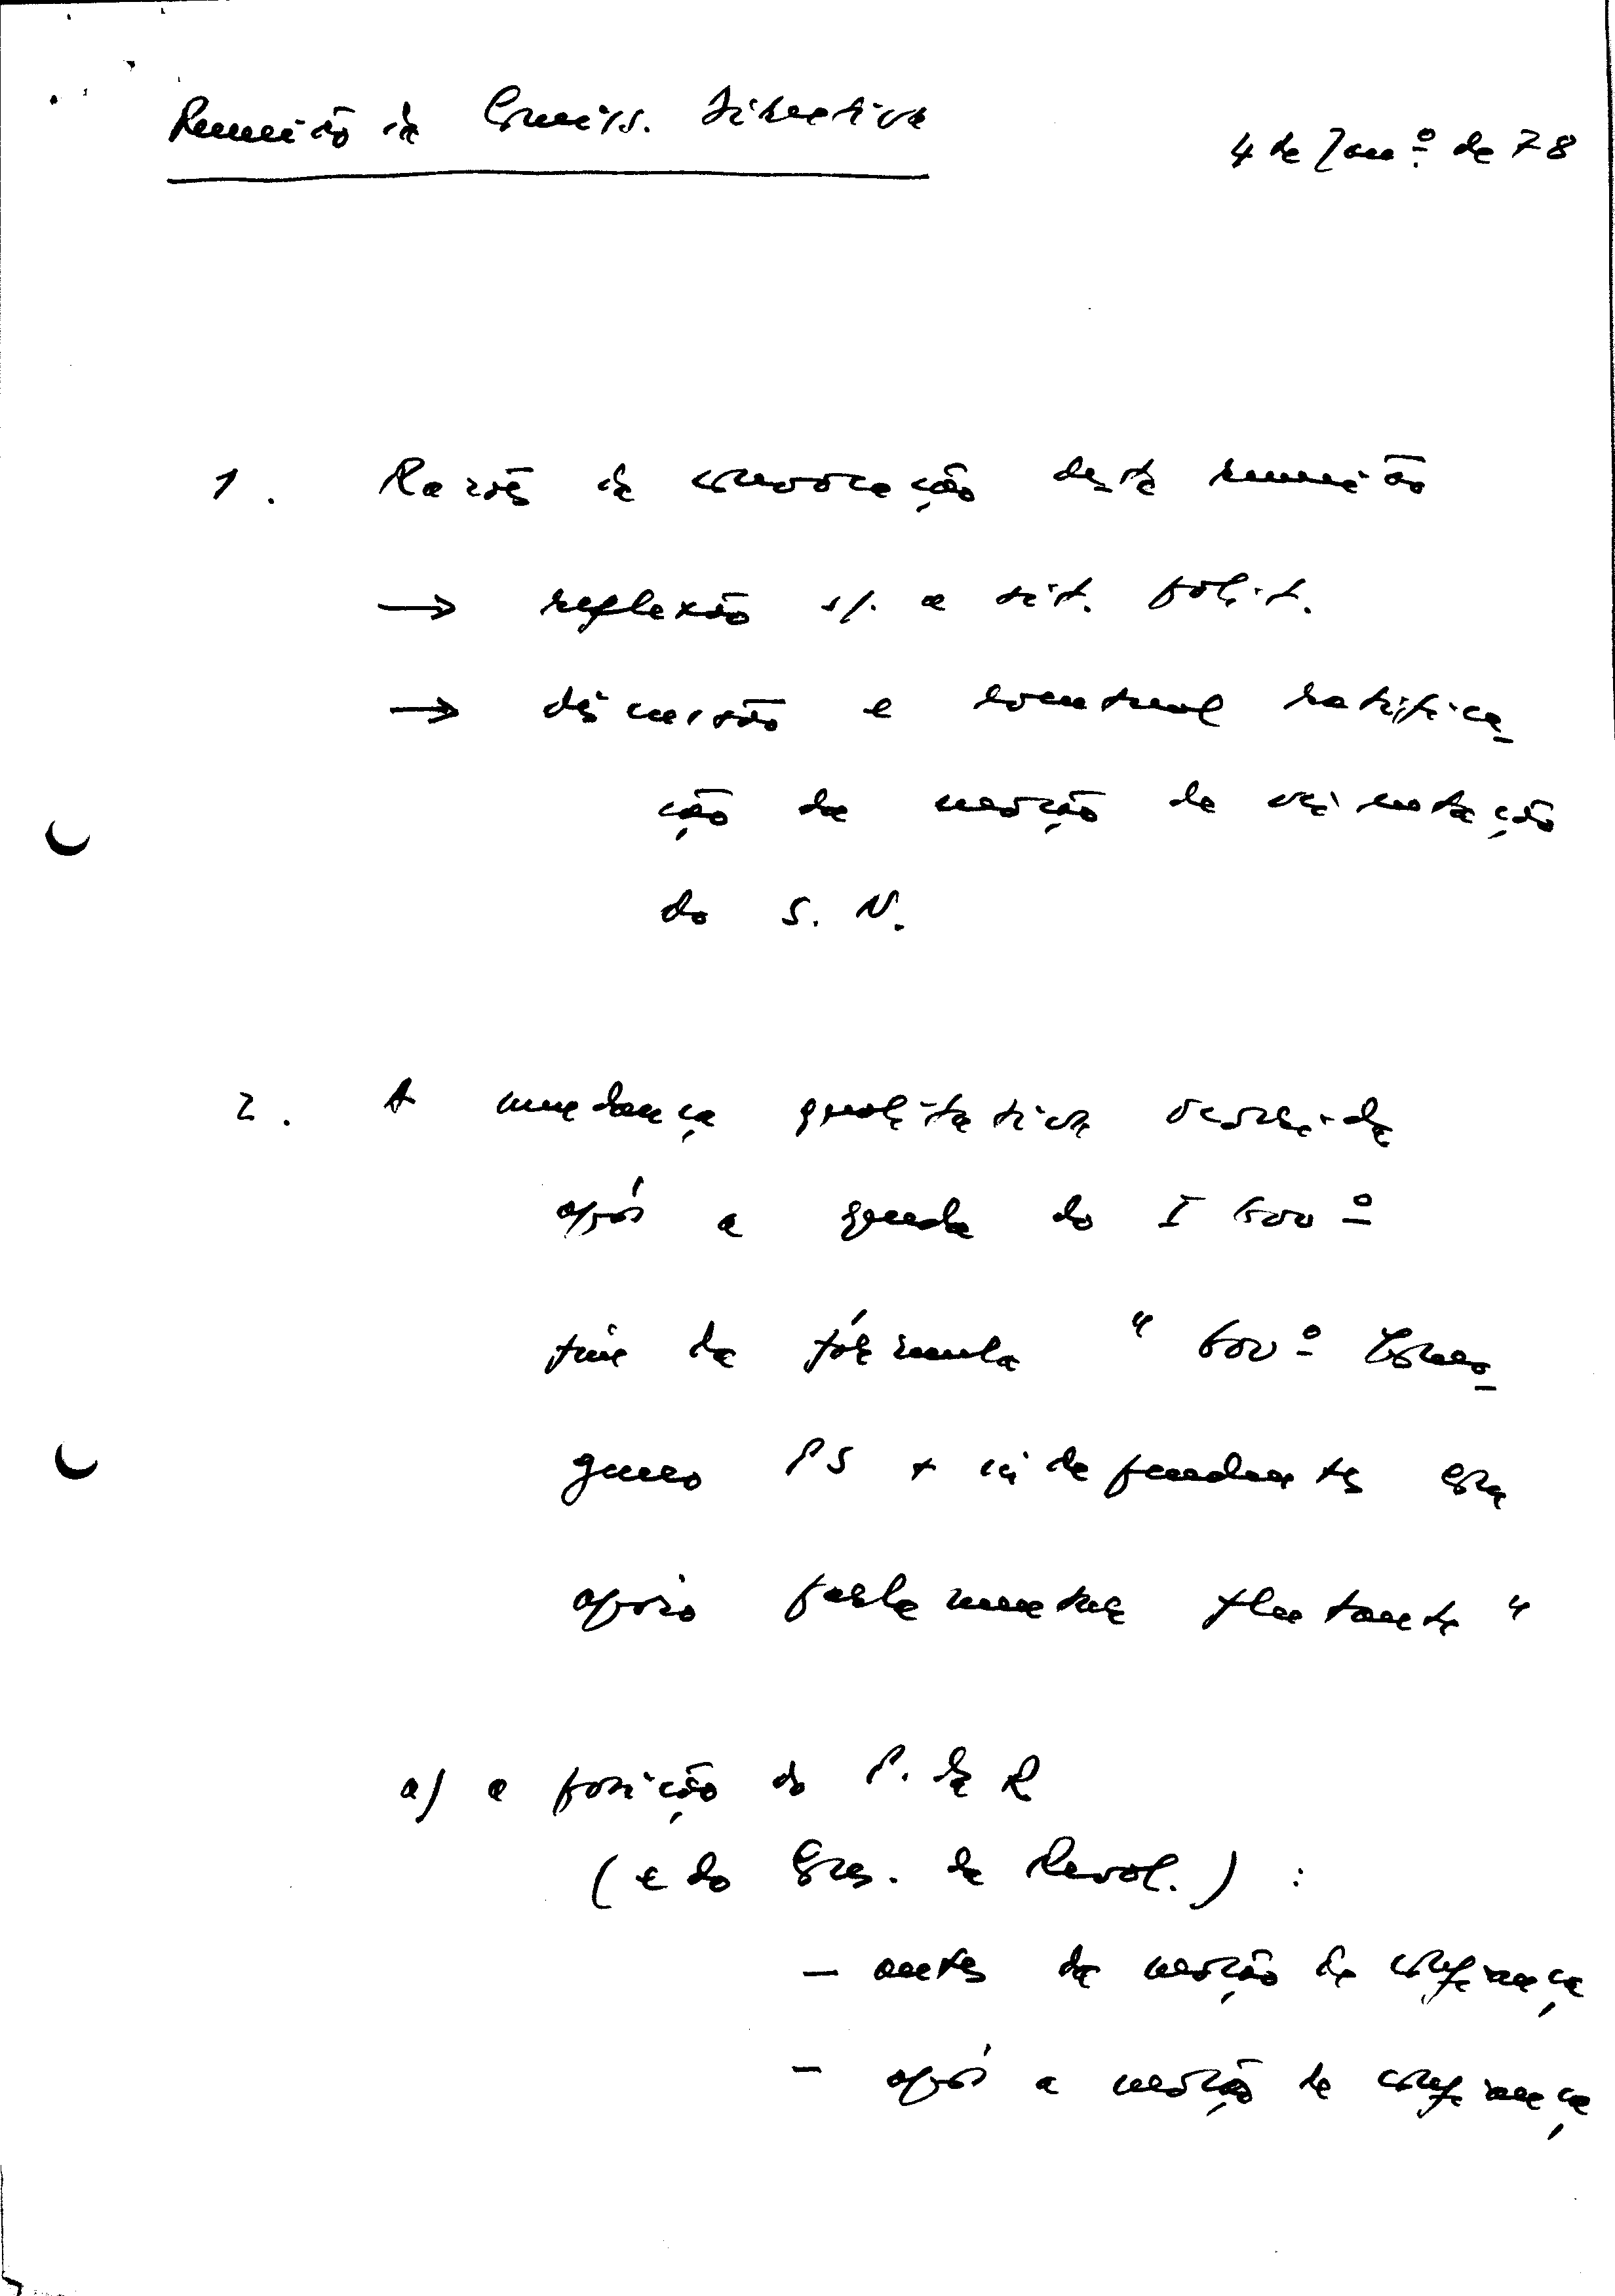 Reunião da Comiss. Directiva
4 de Jan.º de 78
1. Razões da convocação desta reunião
→ reflexão s/. a sit. polít.
→ discussão e eventual ratifica
ção da moção de orientação
do S. N.
2. A mudança qualitativa ocorrida
após a queda do I Gov.º
fim da fórmula " Gov.º homo
géneo PS + independentes com
apoio parlamentar flutuante "
a) a posição do P. da R
(e do Cons. da Revol.) :
- antes da moção de confiança
- após a moção de confiança